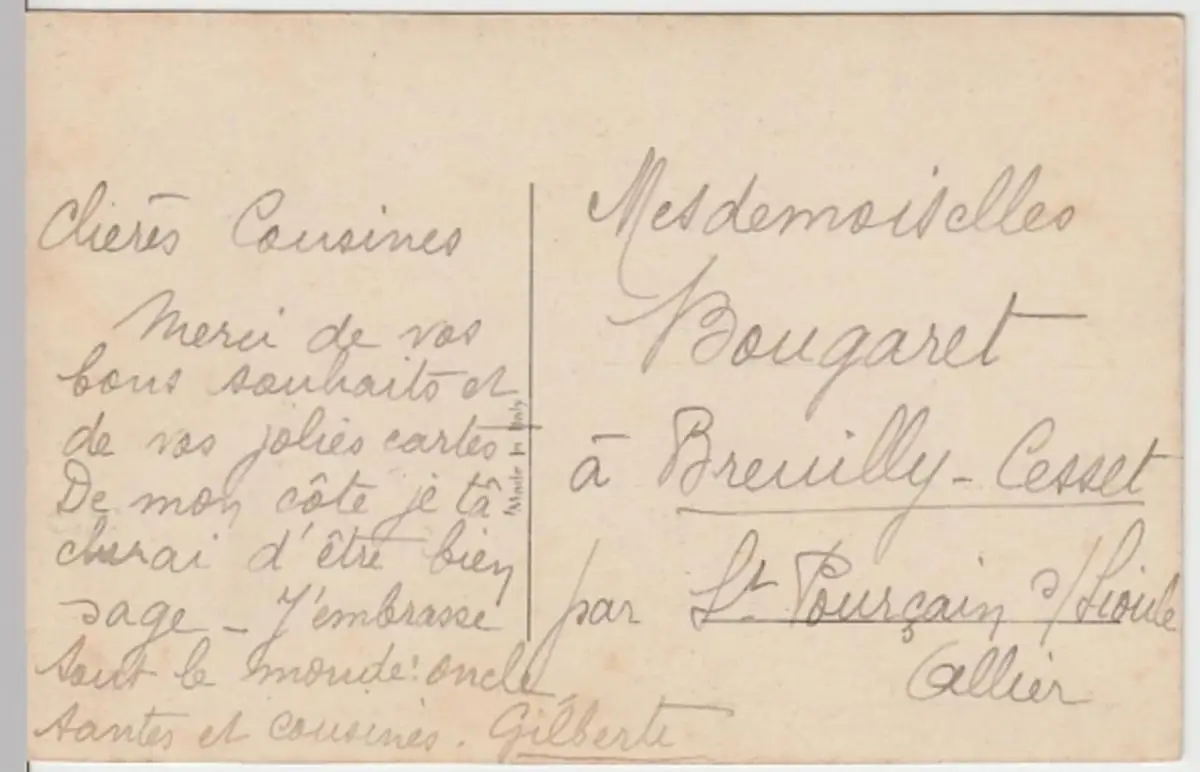 Chères Cousines
Merci de vos
bons souhaits et
de vos jolies cartes
De mon côte je tâ
cherai d'être bien
sage - J'embrasse
tout le monde: oncle,
tantes et cousines. Gilberte
Made in Italy
Mesdemoiselles
Bougaret
à Breuilly-Cesset
par St Pourçain s/Sioule
Allier